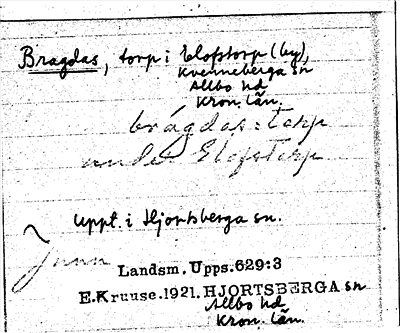 Bragdas, torp i Elofstorp (by),
Kvenneberga sn
Allbo hd
Kron. län.
brágdas:torp
under Elofstorp
Uppt. i Hjortsberga sn.
Landsm. Upps. 629:3
E.Kruuse.1921. HJORTSBERGA sn
Allbo hd
Kron. län.